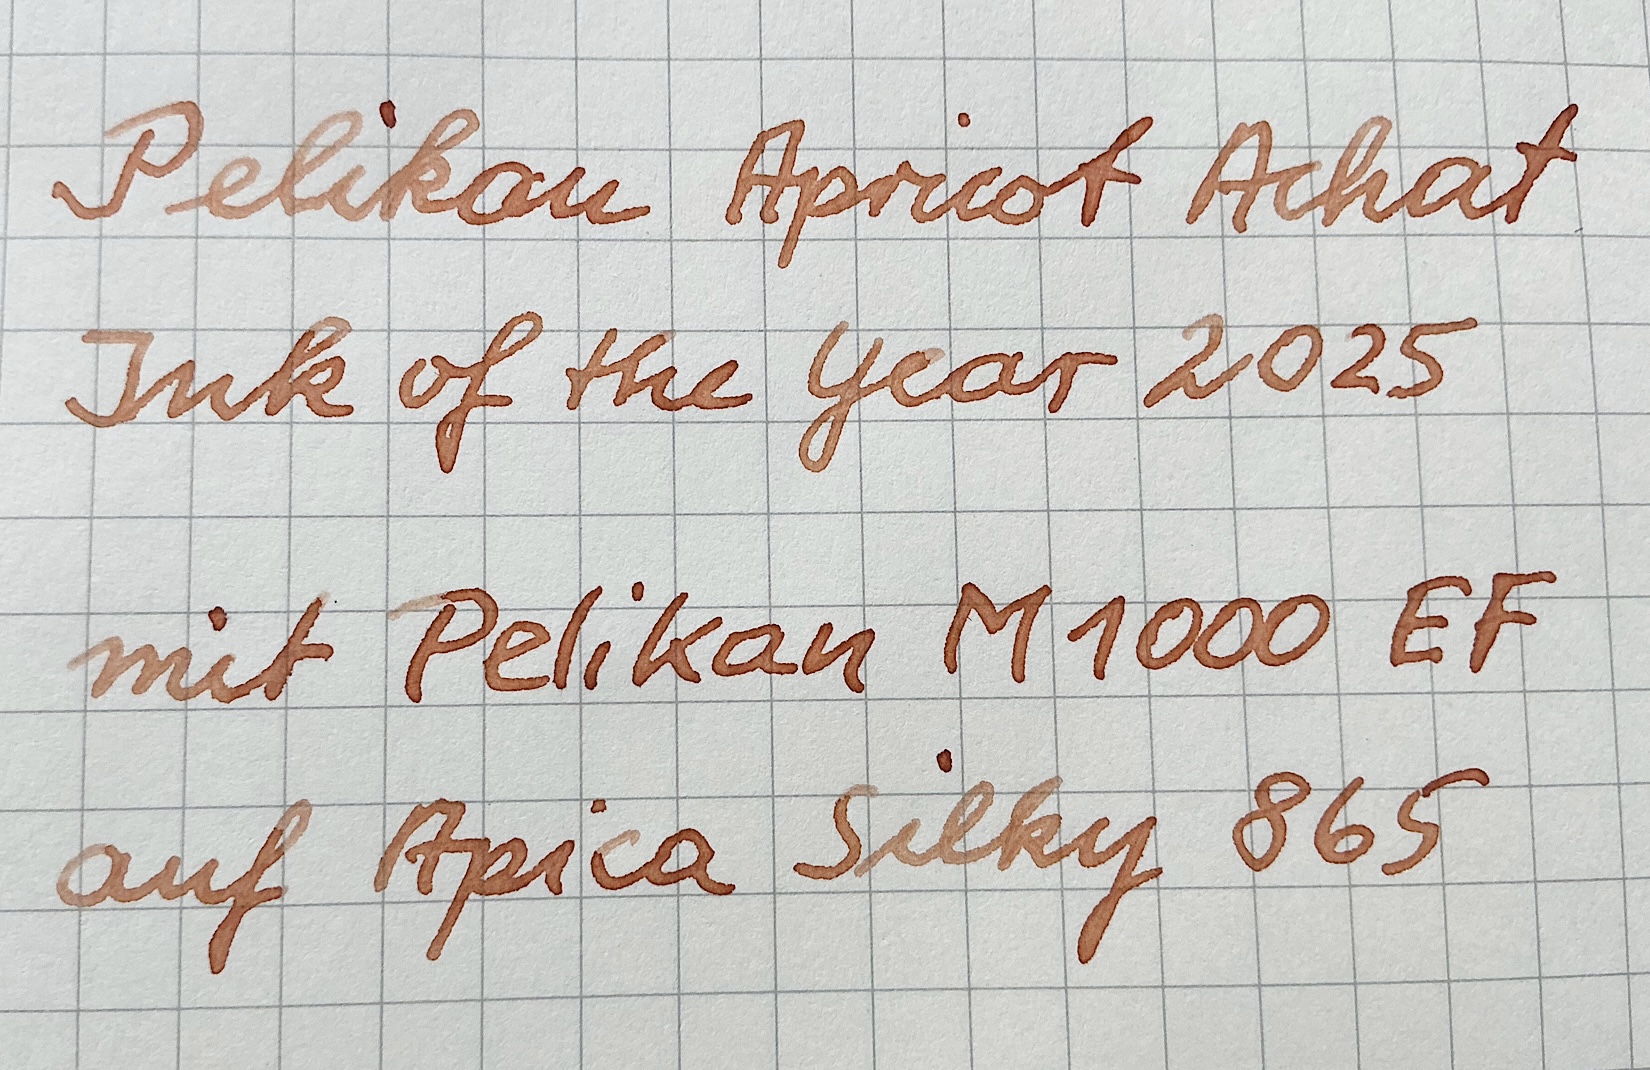 Pelikan Apricot Achat
Ink of the Year 2025
mit Pelikan M1000 EF
auf Apica Silky 865